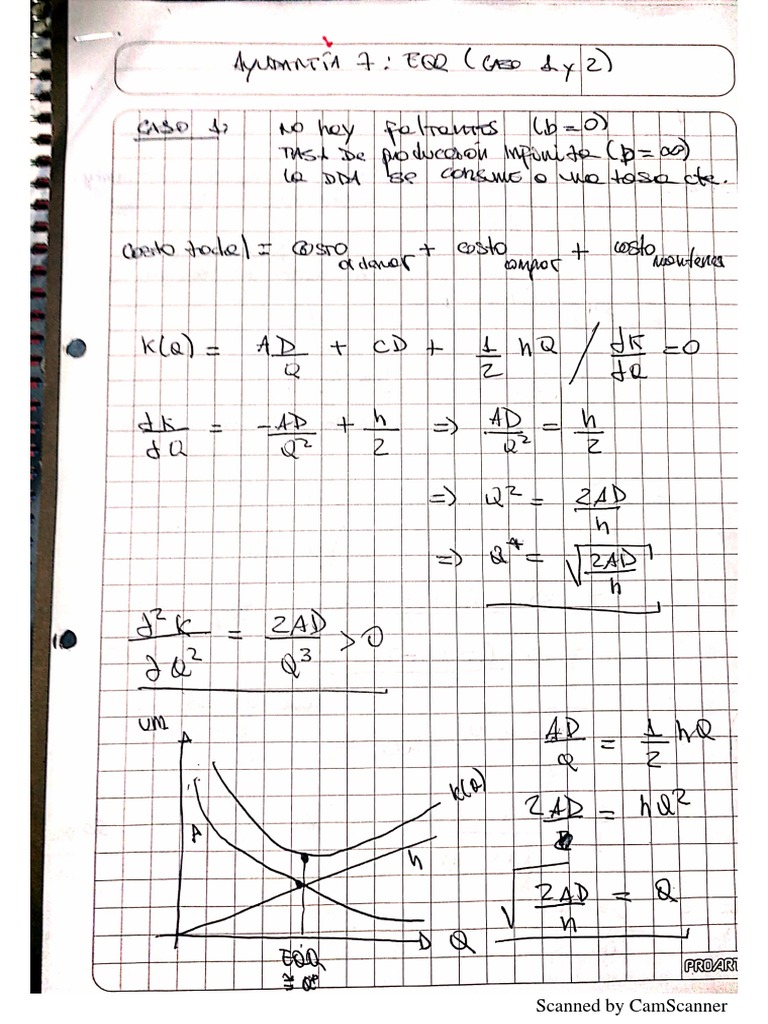 AYUDANTÍA 7: EOQ (CASO 1 y 2)
CASO 1: NO hay faltantes (b=0)
TASA DE producción infinita (p=∞)
LA DDA se consume a una tasa cte.
Costo total = COSTO ordenar + COSTO compar + COSTO mantener
K(Q) = AD/Q + CD + 1/2 hQ / dK/dQ = 0
dK/dQ = -AD/Q² + h/2 => AD/Q² = h/2
=> Q² = 2AD/h
=> Q* = √(2AD/h)
d²K/dQ² = 2AD/Q³ > 0
UM
AD/Q = 1/2 hQ
K(Q)
2AD = hQ²
A
h
√(2AD/h) = Q
Q
EOQ
= Q*
PROART
Scanned by CamScanner